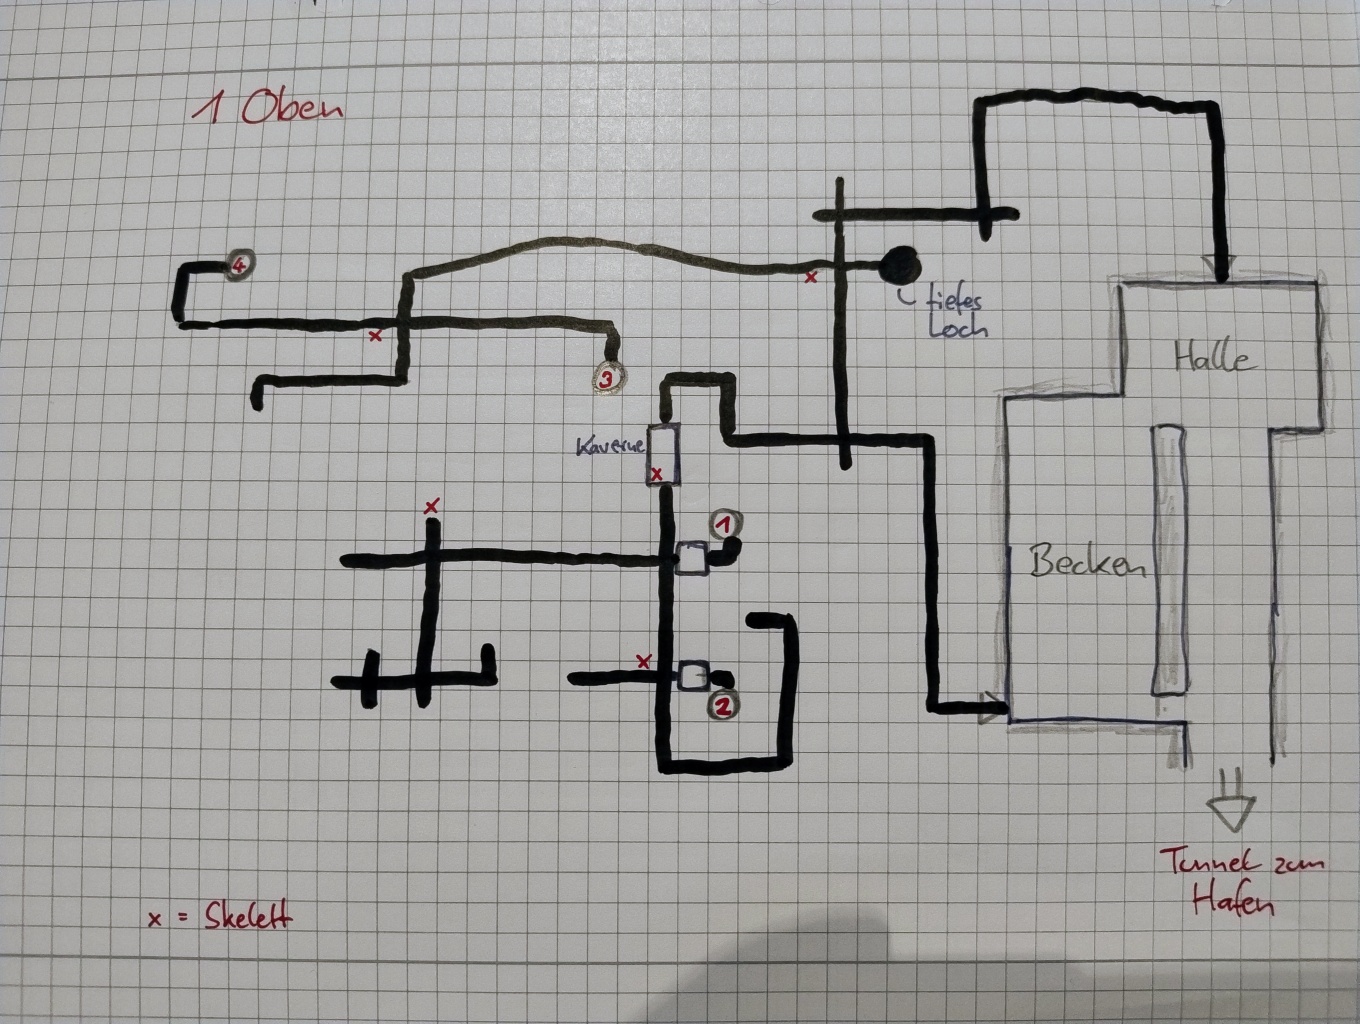 1 Oben
4
x
tiefes
Loch
x
3
Halle
Kaverne
x
x
1
Becken
x
2
Tunnel zum
Hafen
x = Skelett